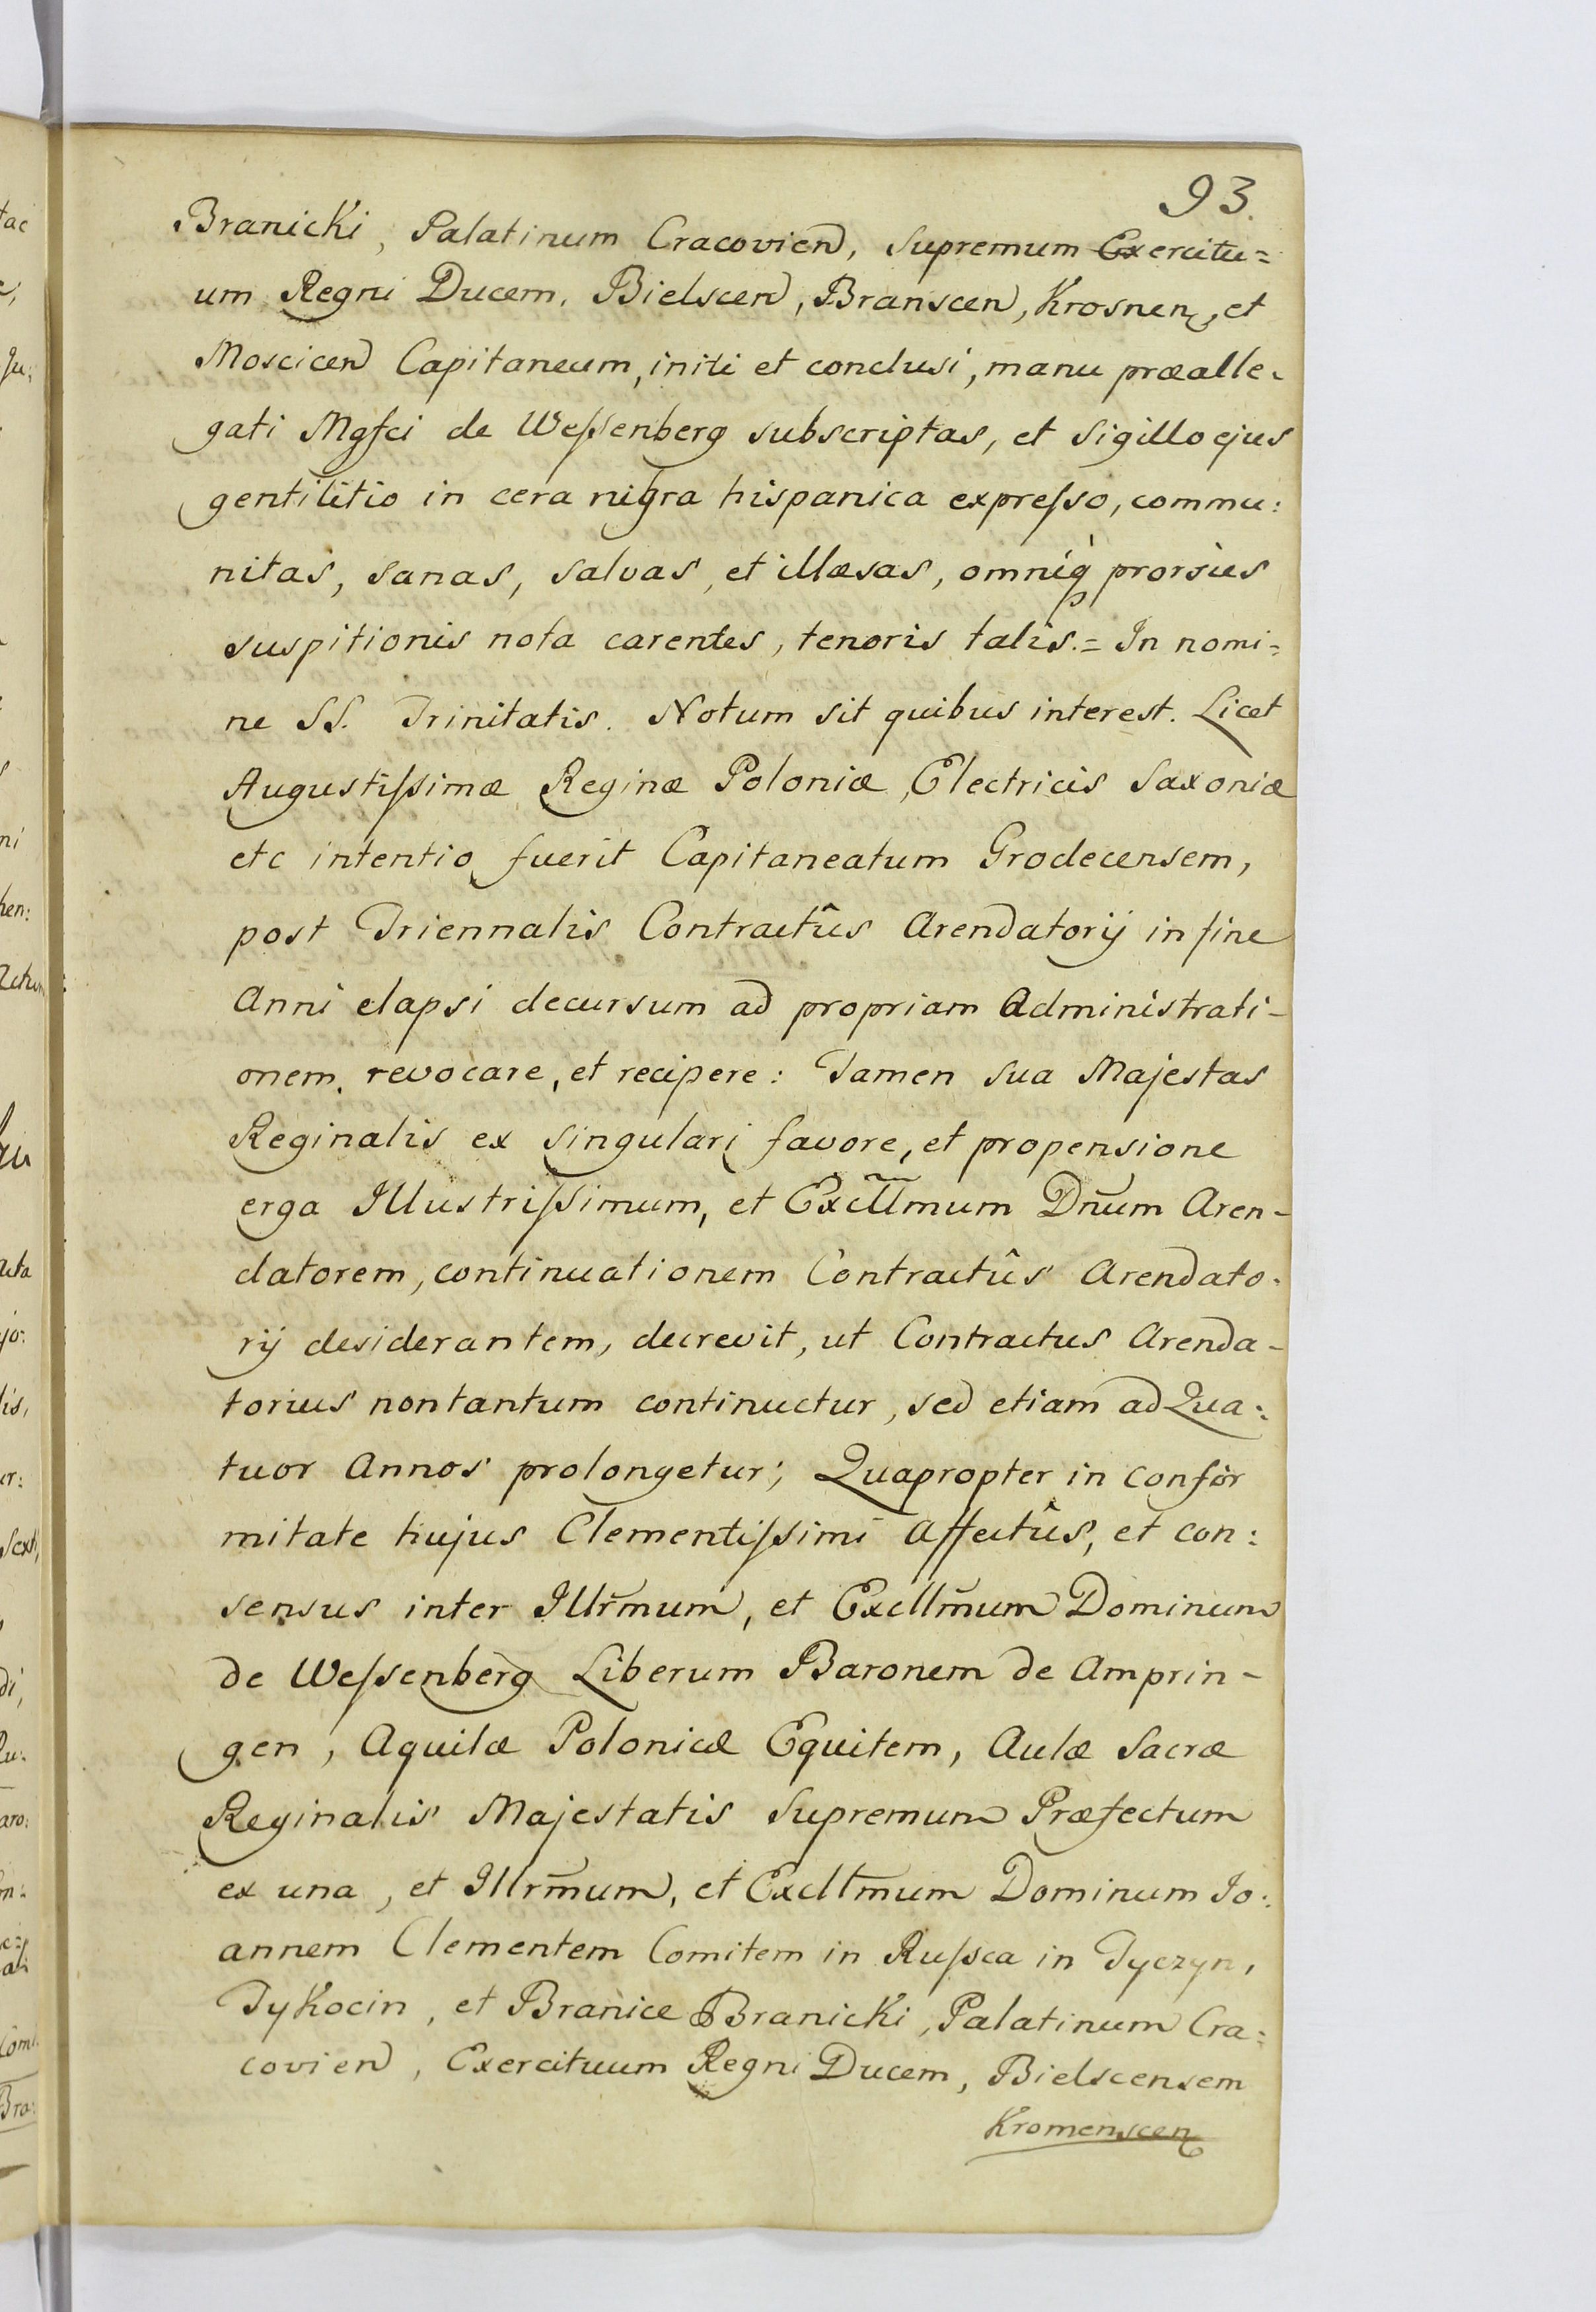 93.
Branicki, Palatinum Cracovien, Supremum Exercitu=
um Regni Ducem, Bielscen, Branscen, Krosnen, et
Moscicen Capitaneum, initi et conclusi, manu præalle-
gati Mgfci de Weſsenberg subscriptas, et Sigillo ejus
gentilitio in cera nigra hispanica expreſso, commu:
nitas, sanas, salvas, et illæsas, omniq̀ prorsùs
suspitionis nota carentes, tenoris talis.= In nomi=
ne SS. Trinitatis. Notum sit quibus interest. Licet
Augustiſsimæ Reginæ Poloniæ, Electricis Saxoniæ
etc intentio fuerit Capitaneatum Grodecensem,
post Triennalis Contractûs Arendatorij in fine
Anni elapsi decursum ad propriam Administrati-
onem revocare, et recipere: Tamen Sua Majestas
Reginalis ex singulari favore, et propensione
erga Illustriſsimum, et Excll̃mum Dñum Aren-
datorem, continuationem Contractûs Arendato-
rij desiderantem, decrevit, ut Contractus Arenda-
torius non tantum continuetur, sed etiam ad Qua:
tuor Annos prolongetur; Quapropter in confor
mitate hujus Clementiſsimi Affectûs, et con:
sensus inter Illr̃mum, et Excll̃mum Dominum
de Weſsenberg Liberum Baronem de Amprin-
gen, Aquilæ Polonicæ Equitem, Aulæ Sacræ
Reginalis Majestatis Supremum Præfectum
ex una, et Illr̃mum, et Excll̃mum Dominum Jo:
annem Clementem Comitem in Ruſsca in Tyczyn,
Tykocin, et Branice Branicki, Palatinum Cra:
covien, Exercituum Regni Ducem, Bielscensem
Kromenscen